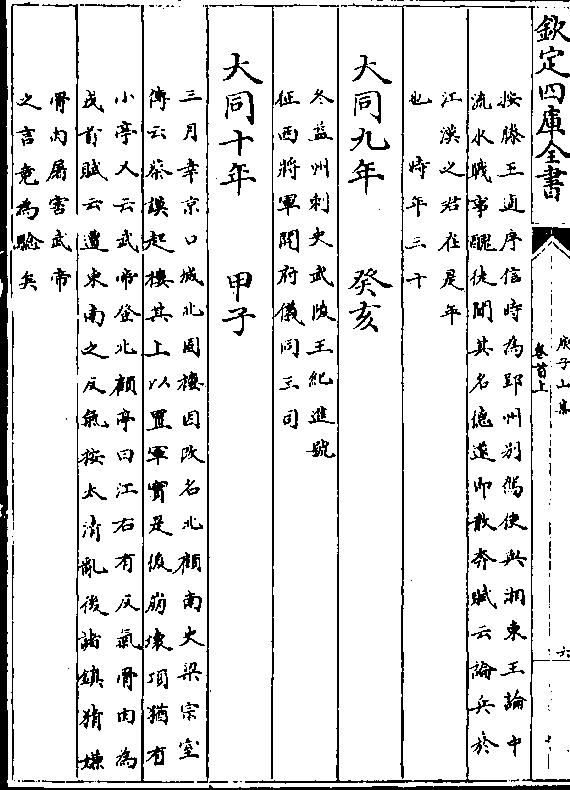 欽定四庫全書
庾子山集
卷首上
六
按滕王逌序信時為郢州别駕使與湘東王論中
流水戰事醜徒聞其名德遂即散奔賦云論兵於
江漢之君在是年
也 時年三十
大同九年 癸亥
冬益州刺史武陵王紀進號
征西將軍開府儀同三司
大同十年 甲子
三月幸京口城北固樓因改名北顧南史梁宗室
傳云蔡謨起樓其上以置軍實是後崩壞頂猶有
小亭又云武帝登北顧亭曰江右有反氣骨肉為
戎首賦云遭東南之反氣按太清亂後諸鎮猜嫌
骨肉屠害武帝
之言竟為驗矣